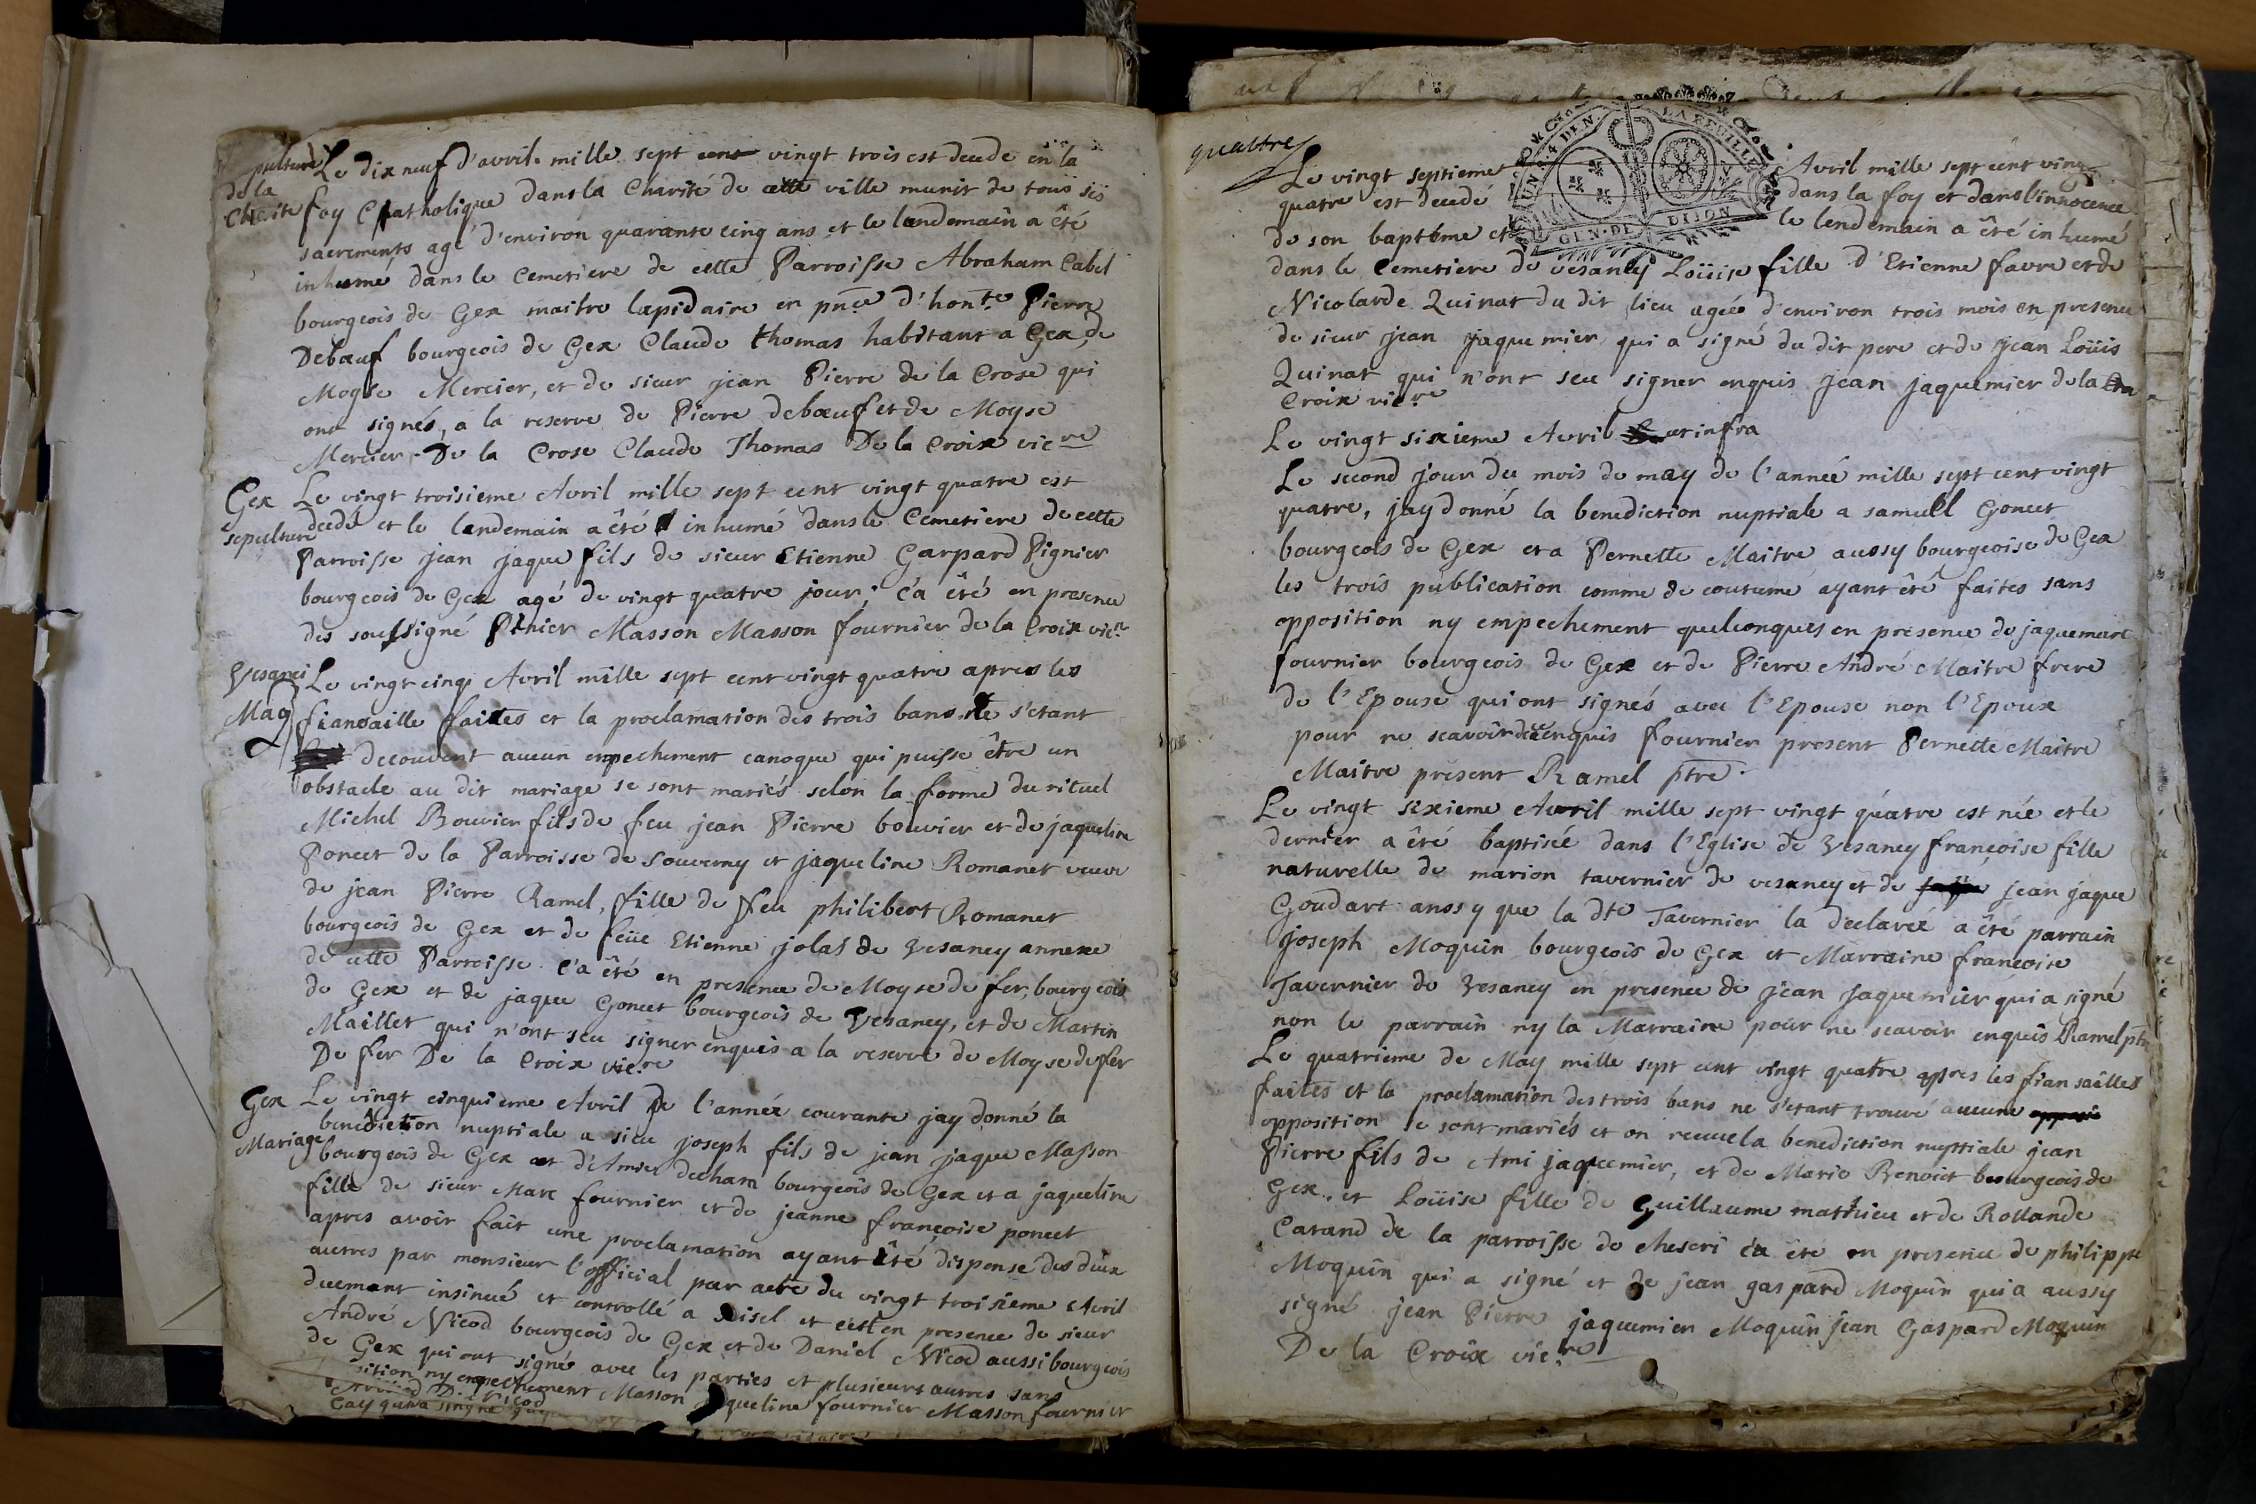 pulture Le dix neuf d'avril mille sept cent vingt trois est decede en la
de la
Charite foy Catholique dans la Charité de cette ville munit de tous ses
sacrements agé d'environ quarante cinq ans et le landemain a été
inhumé dans le Cemetiere de cette Parroisse Abraham Cabel
bourgeois de Gex maitre lapidaire en pnce d'honte Pierre
Debœuf bourgeois de Gex Claude thomas habitant a Gex, de
Moyse Mercier, et de sieur jean Pierre de la Crose qui
ont signés, a la reserve de Pierre debœuf et de Moyse
Mercier. De la Crose Claude Thomas De la Croix vicre
Gex Le vingt troisieme Avril mille sept cent vingt quatre est
sepulture decedé et le landemain a êté inhumé dans le Cemetiere de cette
Parroisse jean jaque fils de sieur Etienne Gaspard Pignier
bourgeois de Gex agé de vingt quatre jour; c'a êté en presence
des soussigné Masson Masson fournier de la Croix vicre
Vesanci Le vingt cinq Avril mille sept cent vingt quatre apres les
Mag fiansaille faites et la proclamation des trois bans ne s'etant
decouvert aucun enpechement canoque qui puisse être un
obstacle au dit mariage se sont mariés selon la forme du rituel
Michel Bouvier fils de feu jean Pierre bouvier et de jaqueline
Poncet de la Parroisse de Souverny et jaqueline Romanet veuve
de jean Pierre Ramel, fille de feu philibert Romanet
bourgeois de Gex et de feüe Etienne jolas de Vesancy annexe
de cette Parroisse c'a êté en presence de Moyse de fer, bourgeois
de Gex et de jaque Goncet bourgeois de Vesancy, et de Martin
Maillet qui n'ont seu signer enquis a la reserve de Moyse de fer
De fer De la Croix vicre
Gex Le vingt cinquieme Avril de l'année courante jay donné la
benediction nuptiale a sieu joseph fils de jean jaque Masson
Mariage bourgeois de Gex et d'Amier decham bourgeois de Gex et a jaqueline
fille de sieur Marc fournier et de jeanne françoise poncet
apres avoir fait une proclamation ayant êté dispensé des deux
autres par monsieur l'official par acte du vingt troisieme Avril
duemant insinué et controllé a Seisel et cest en presence de sieur
André Nicod bourgeois de Gex et de Daniel Nicod aussi bourgeois
de Gex qui ont signés avec les parties et plusieurs autres sans
sition ny enpechement Masson queline fournier Masson fournier
Nicod
quattre
Le vingt septieme Avril mille sept cent vingt
quatre est decedé dans la foy et dans l'innocence
de son baptême et le lendemain a êté inhumé
UN. 4 DEN. LA FEUILLE
GEN. DE DIJON
dans le Cemetiere de vesancy Loüise fille d'Etienne favre et de
Nicolarde Quinat du dit lieu ageé d'environ trois mois en presence
de sieur jean jaquemier qui a signé du dit pere et de jean Loüis
Quinat qui n'ont seu signer enquis jean jaquemier de la
Croix vicre
Le vingt sixieme Avril ut infra
Le second jour du mois de may de l'année mille sept cent vingt
quatre, jay donné la benediction nuptiale a samuel Goncet
bourgeois de Gex et a Pernette Maitre aussy bourgeoise de Gex
les trois publication comme de coutume ayant êté faites sans
opposition ny empechement quelconques en presence de jaquemart
fournier bourgeois de Gex et de Pierre André Maitre frere
de l'Epouse qui ont signés avec l'Epouse non l'Epoux
pour ne scavoir de ce enquis fournier present Pernette Maitre
Maitre present Ramel ptre.
Le vingt sixieme Avril mille sept vingt quatre est née et le
dernier a êté baptisée dans l'Eglise de Vesancy françoise fille
naturelle de marion tavernier de vesancy et de jean jaque
Goudart anssy que la dte Tavernier la declaré a êté parrain
joseph Moquin bourgeois de Gex et Marraine françoise
Tavernier de Vesancy en presence de jean jaquemier qui a signé
non le parrain ny la Marraine pour ne scavoir enquis Ramel ptre
Le quatrieme de May mille sept cent vingt quatre apres les fiansailles
faites et la proclamation des trois bans ne s'etant trouvé aucune
opposition se sont mariés et on receu la benediction nuptiale jean
Pierre fils de Ami jaquemier, et de Marie Benoict bourgeois de
Gex, et Loüise fille de Guillaume mathieu et de Rollande
Carand de la parroisse de cheseri c'a êté en presence de philippe
Moquin qui a signé et de jean gaspard Moquin qui a aussy
signé jean Pierre jaquemier Moquin jean Gaspard Moquin
De la Croix vicre